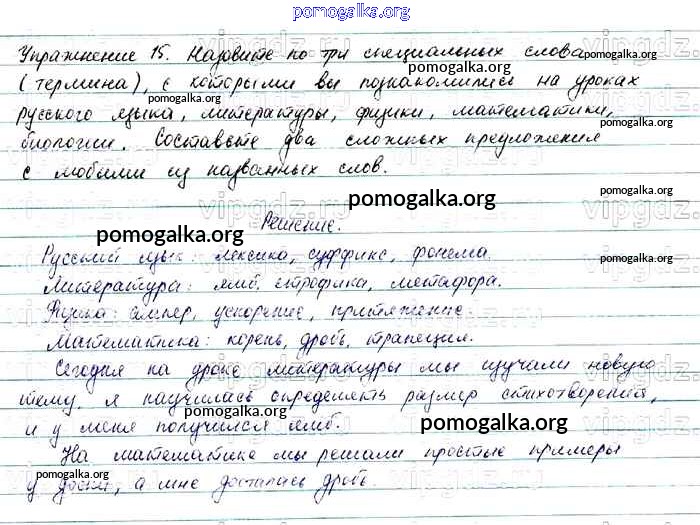 pomogalka.org
Упражнение 15. Назовите по три специальных слова
pomogalka.org
(термина), с которыми вы познакомились на уроках
pomogalka.org
русского языка, литературы, физики, математики,
pomogalka.org
биологии. Составьте два сложных предложения
с любыми из названных слов.
pomogalka.org pomogalka.org
vipgdz.ru vipgdz.ru
Решение.
pomogalka.org
Русский язык: лексика, суффикс, фонема.
pomogalka.org
Литература: ямб, строфика, метафора.
Физика: ампер, ускорение, притяжение.
Математика: корень, дробь, трапеция.
Сегодня на уроке литературы мы изучали новую
тему, я научилась определять размер стихотворения,
pomogalka.org pomogalka.org
и у меня получился ямб.
На математике мы решали простые примеры
pomogalka.org
у доски, а мне досталась дробь.